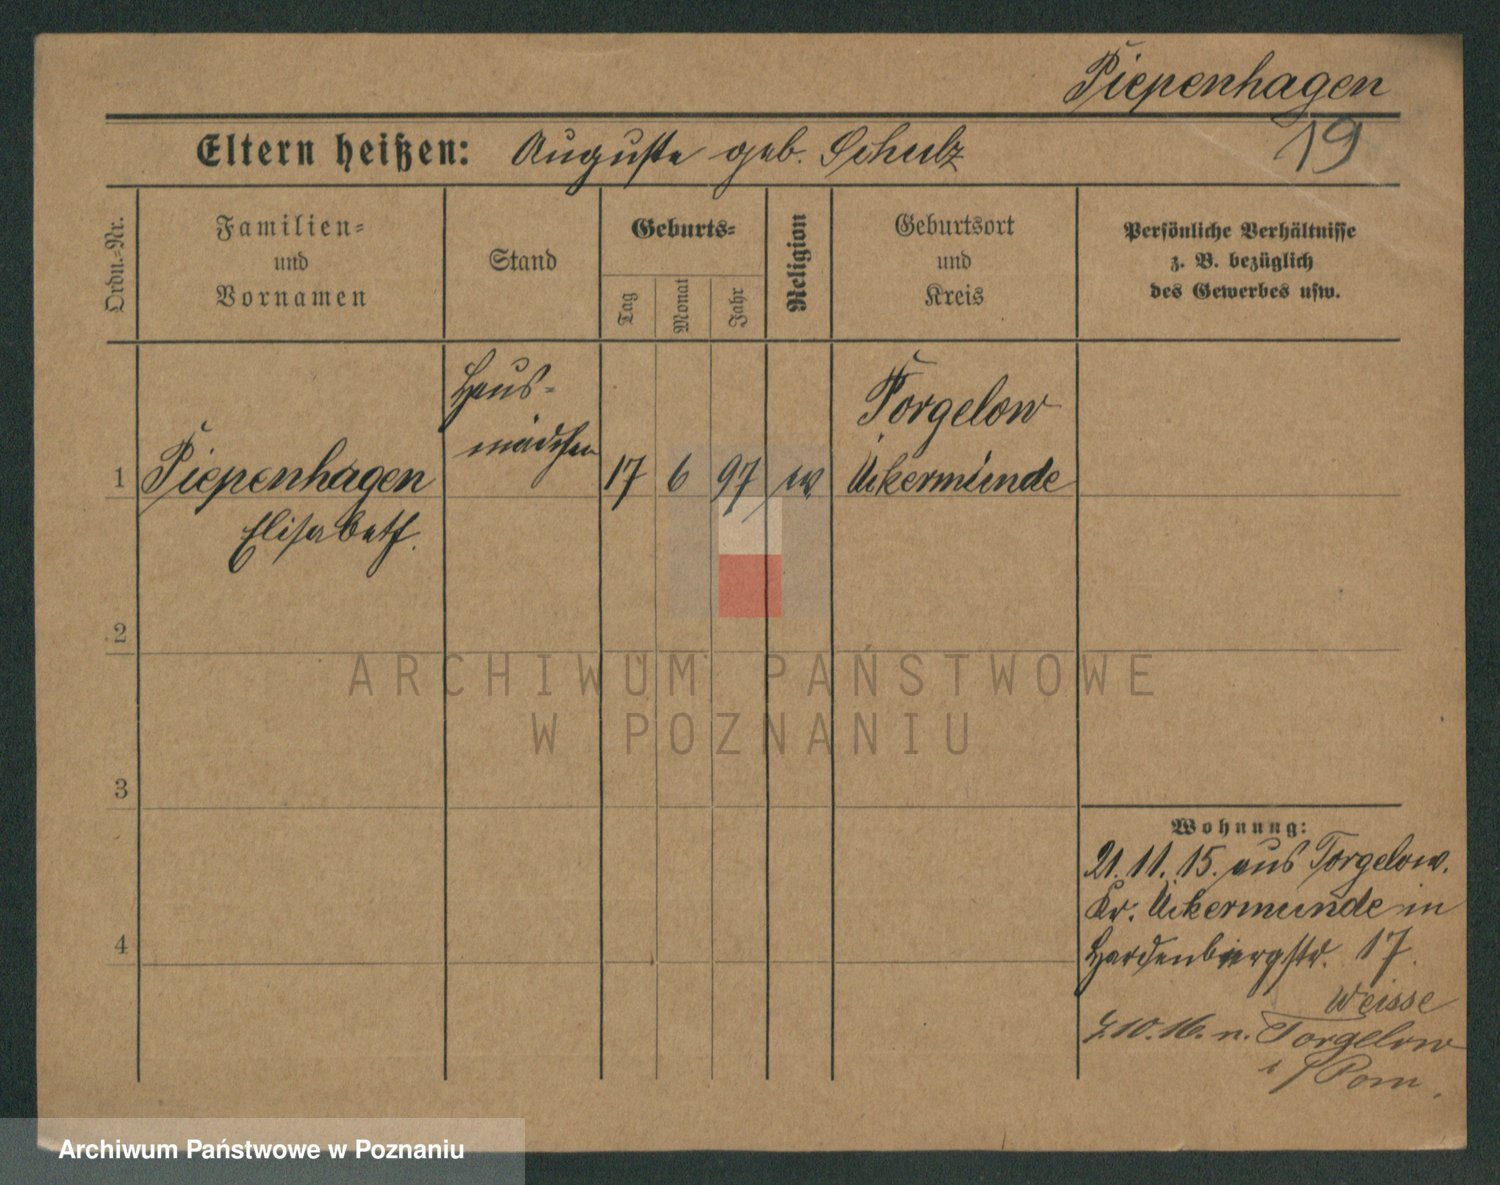 Piepenhagen
19
Eltern heißen: Auguste geb. Schulz
Ordn.-Nr.
Familien-
und
Vornamen
Stand
Geburts-
Tag
Monat
Jahr
Religion
Geburtsort
und
Kreis
Persönliche Verhältnisse
z. B. bezüglich
des Gewerbes usw.
Haus-
mädchen
Torgelow
1 Piepenhagen 17 6 97 ew Ückermünde
Elisabeth.
2
3
4
ARCHIWUM PAŃSTWOWE
W POZNANIU
Wohnung:
21.11.15. aus Torgelow.
Kr. Ückermünde in
Hardenbergstr. 17.
Weisse
7.10.16. n. Torgelow
i/Pom.
Archiwum Państwowe w Poznaniu